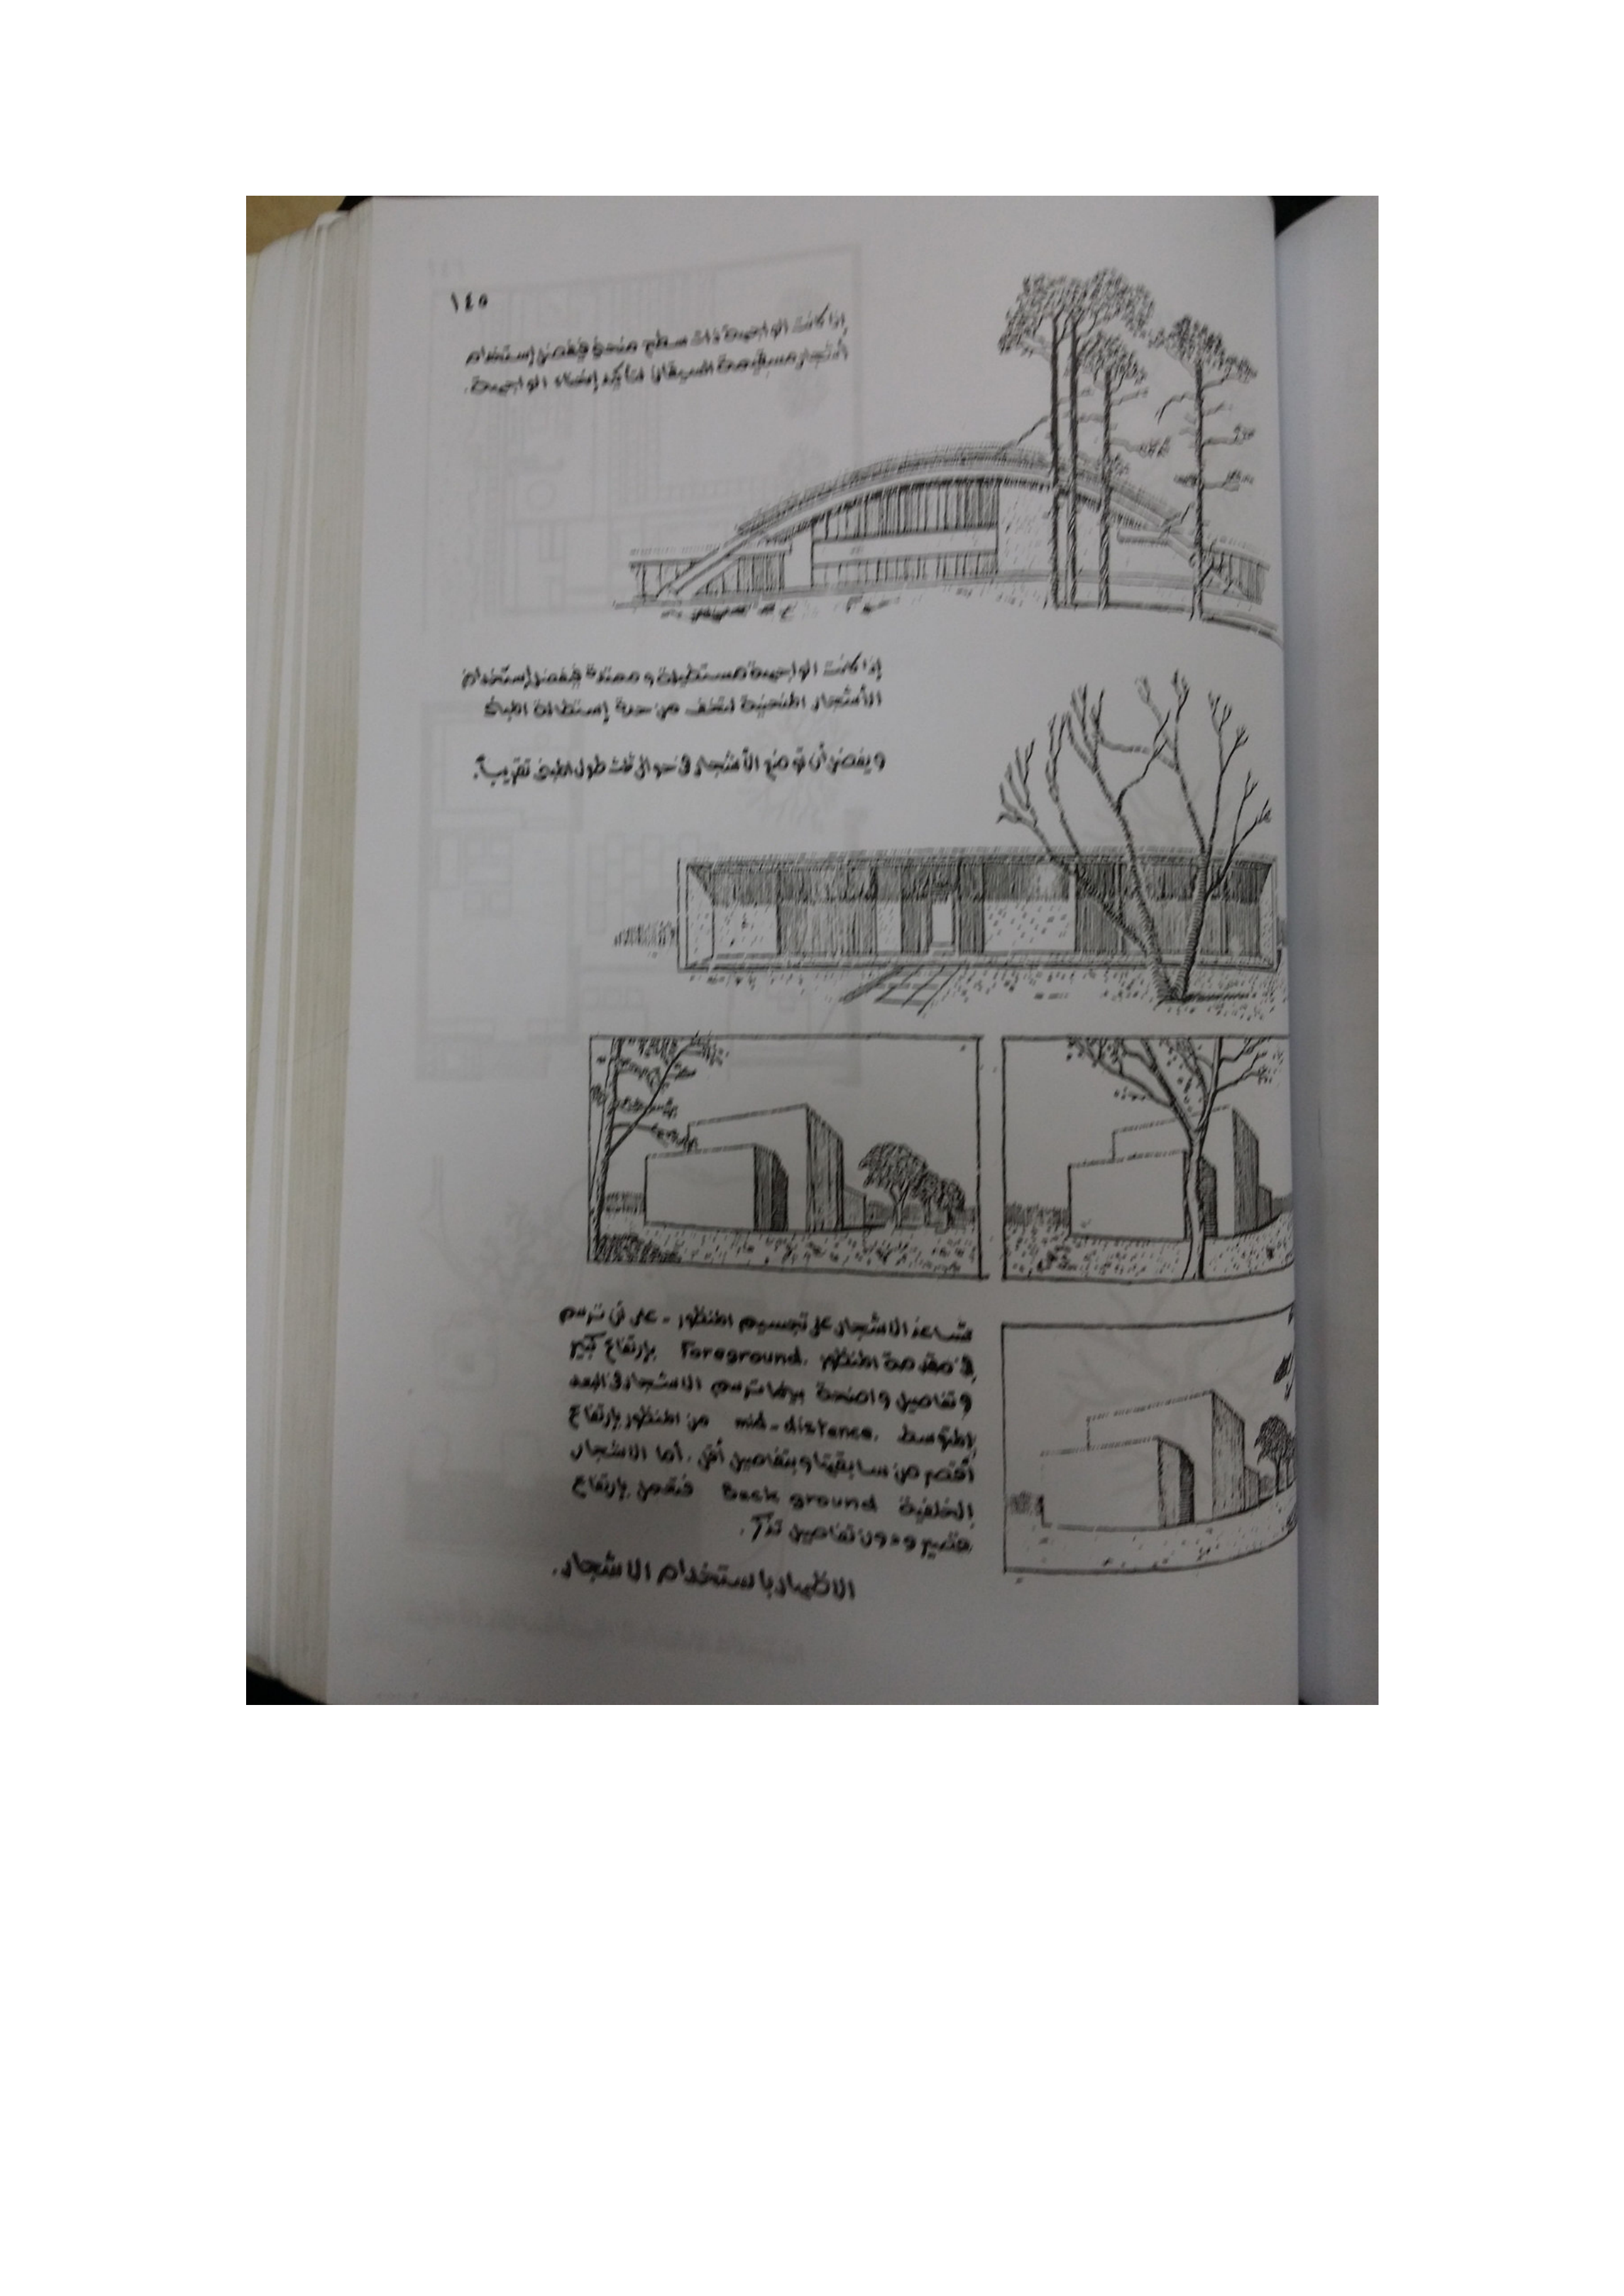 ١٤٥
إذا كانت الواجهة ذات سطح منحنى فيفضل إستخدام
أشجار مستقيمة السيقان لتأكيد إنحناء الواجهة.
إذا كانت الواجهة مستطيلة وممتدة فيفضل إستخدام
الأشجار المنحنية لتخفف من حدة إستطالة المبنى
ويفضل أن توضع الأشجار فى حوالى ثلث طول المبنى تقريباً.
تساعد الاشجار على تجسيم المنظور - على أن ترسم
فى مقدمة المنظور Foreground. بإرتفاع كبير
وتفاصيل واضحة بينما ترسم الاشجار فى البعد
المتوسط mid-distance. من المنظور بإرتفاع
أقصر من سابقتها وبتفاصيل أقل. أما الاشجار
الخلفية Back ground فتعمل بإرتفاع
قصير ودون تفاصيل تذكر.
الاظهار باستخدام الاشجار.